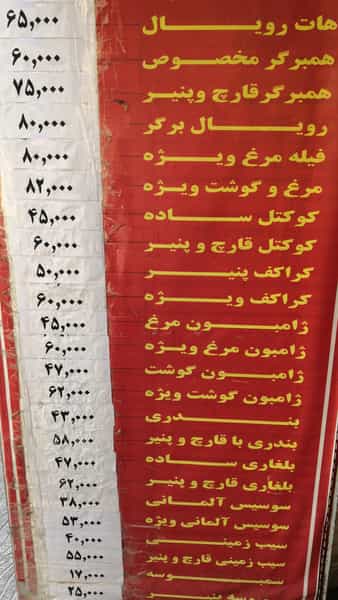 هات رویال ۶۵,۰۰۰
همبرگر مخصوص ۶۰,۰۰۰
همبرگر قارچ وپنیر ۷۵,۰۰۰
رویال برگر ۸۰,۰۰۰
فیله مرغ ویژه ۸۰,۰۰۰
مرغ و گوشت ویژه ۸۲,۰۰۰
کوکتل ساده ۴۵,۰۰۰
کوکتل قارچ و پنیر ۶۰,۰۰۰
کراکف پنیر ۵۰,۰۰۰
کراکف ویژه ۶۰,۰۰۰
ژامبون مرغ ۴۵,۰۰۰
ژامبون مرغ ویژه ۶۰,۰۰۰
ژامبون گوشت ۴۷,۰۰۰
ژامبون گوشت ویژه ۶۲,۰۰۰
بندری ۴۳,۰۰۰
بندری با قارچ و پنیر ۵۸,۰۰۰
بلغاری ساده ۴۷,۰۰۰
بلغاری قارچ و پنیر ۶۲,۰۰۰
سوسیس آلمانی ۳۸,۰۰۰
سوسیس آلمانی ویژه ۵۳,۰۰۰
سیب زمینی ۴۰,۰۰۰
سیب زمینی قارچ و پنیر ۵۵,۰۰۰
سمبوسه ۱۷,۰۰۰
پنیر ۲۵,۰۰۰